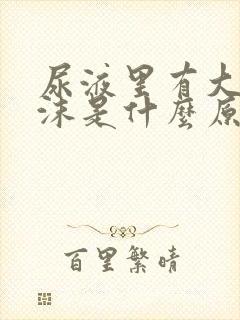 尿液里有大
沫是什麼原
百里繁晴